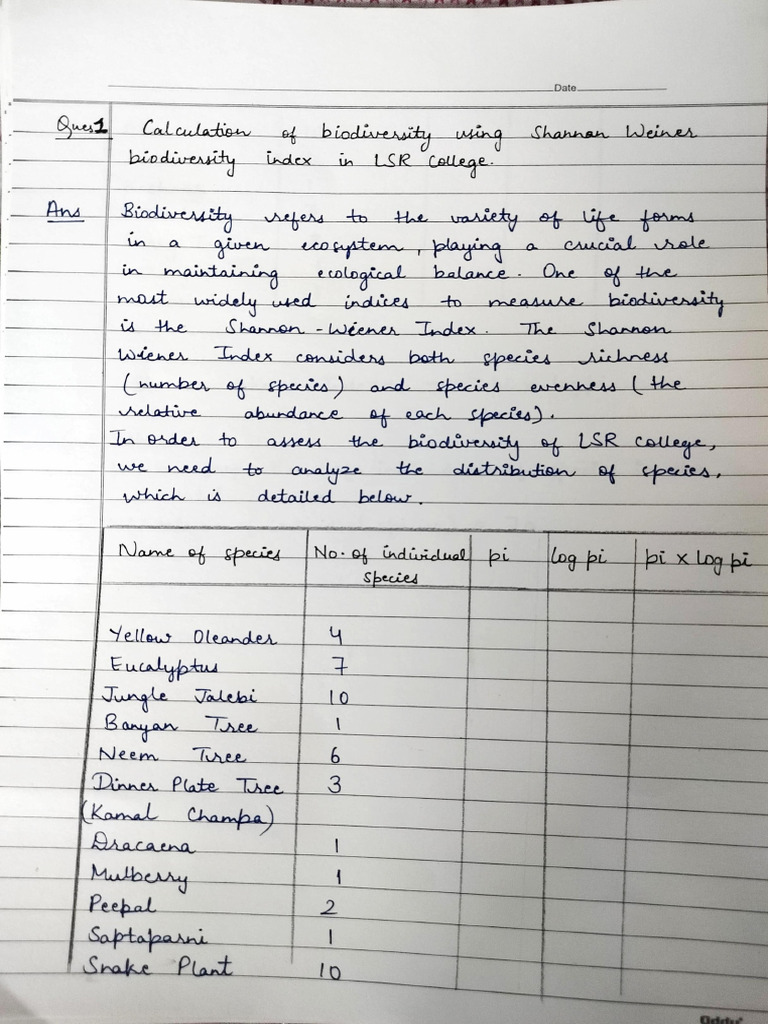 Date
Ques1 Calculation of biodiversity using Shannon Weiner
biodiversity index in LSR College.
Ans Biodiversity refers to the variety of life forms
in a given ecosystem, playing a crucial role
in maintaining ecological balance. One of the
most widely used indices to measure biodiversity
is the Shannon-Weener Index. The Shannon
Wiener Index considers both species richness
(number of species) and species evenness (the
relative abundance of each species).
In order to assess the biodiversity of LSR college,
we need to analyze the distribution of species,
which is detailed below.
Name of species No. of individual species pi log pi pi x log pi
Yellow Oleander 4
Eucalyptus 7
Jungle Jalebi 10
Banyan Tree 1
Neem Tree 6
Dinner Plate Tree 3
(Kamal Champa)
Dracaena 1
Mulberry 1
Peepal 2
Saptaparni 1
Snake Plant 10
Oddy